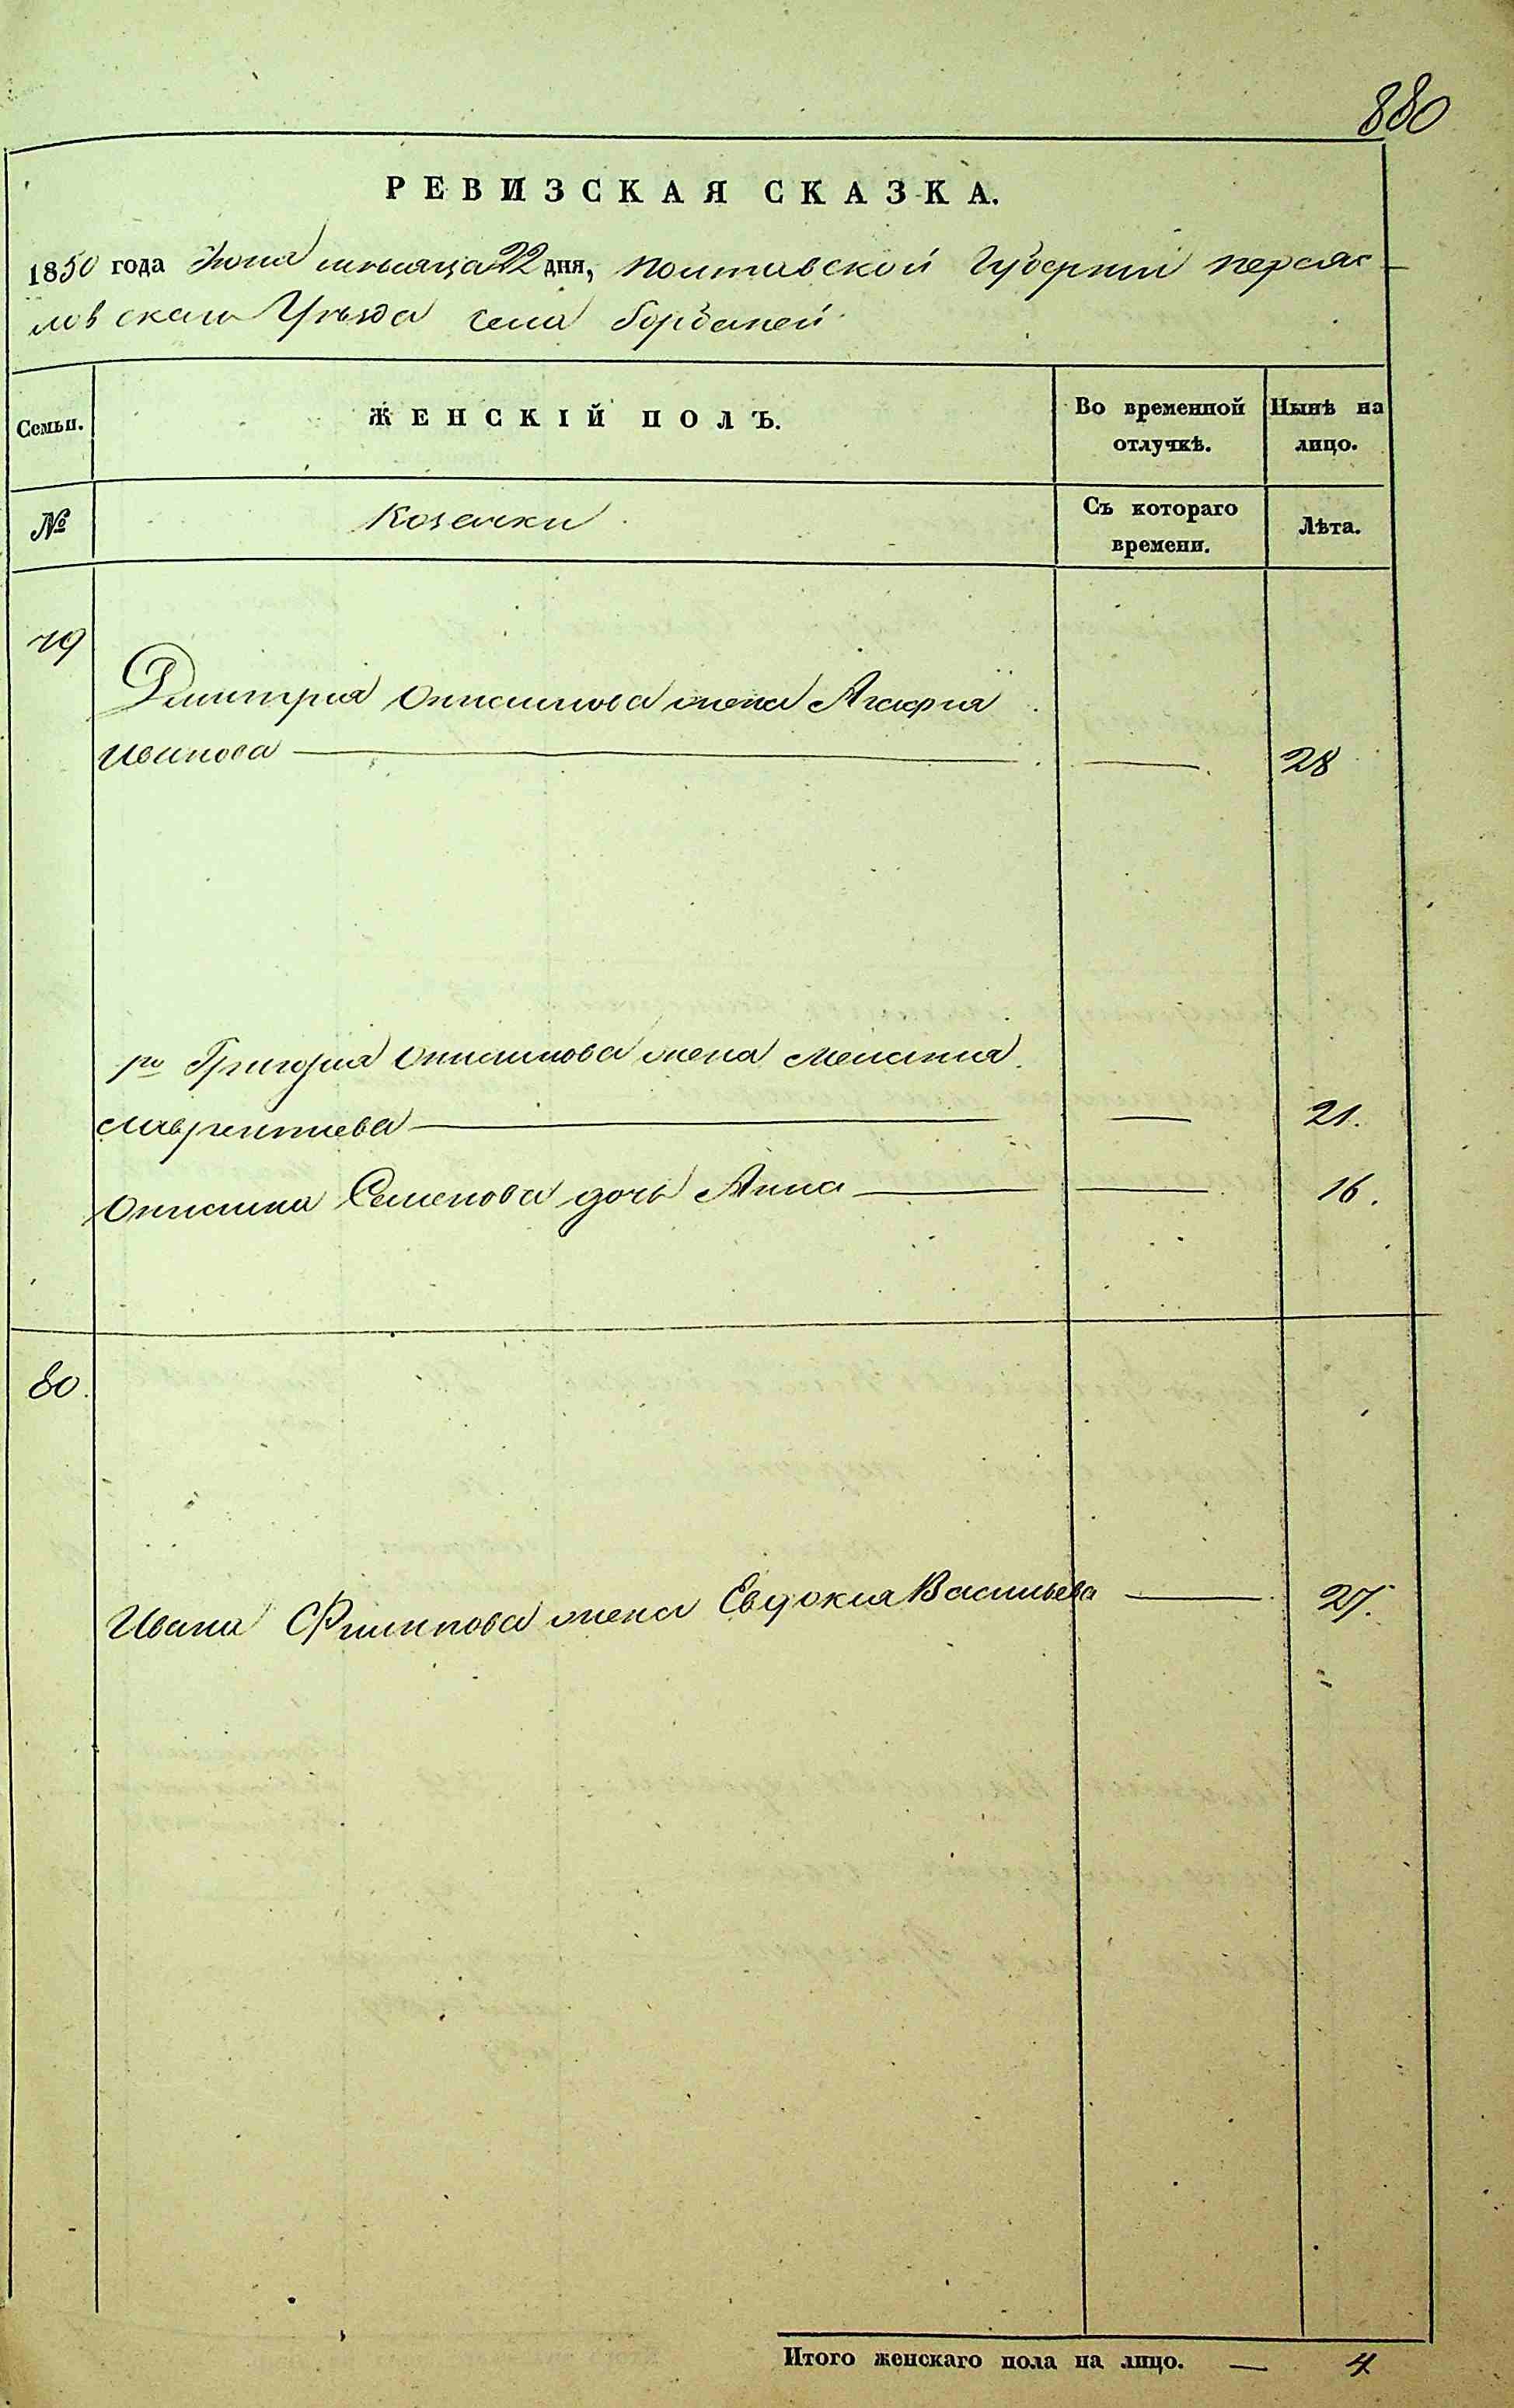 880
РЕВИЗСКАЯ СКАЗКА.
1850 года Июня месяца 22 дня, Полтавской Губернии Переяс-
ловскаго Уезда села Борбаней
Семьи.
ЖЕНСКІЙ ПОЛЪ.
Во временной отлучкѣ.
Нынѣ на лицо.
№
Козачки
Съ котораго времени.
Лѣта.
79
Дмитрия Онисимова жена Агафия
Иванова — — 28
1го Григория Онисимова жена Мелания
Лаврентиева — — 21.
Онисима Семенова дочь Анна — — 16.
80.
Ивана Филипова жена Евдокия Васильева — 27.
Итого женскаго пола на лицо. — 4